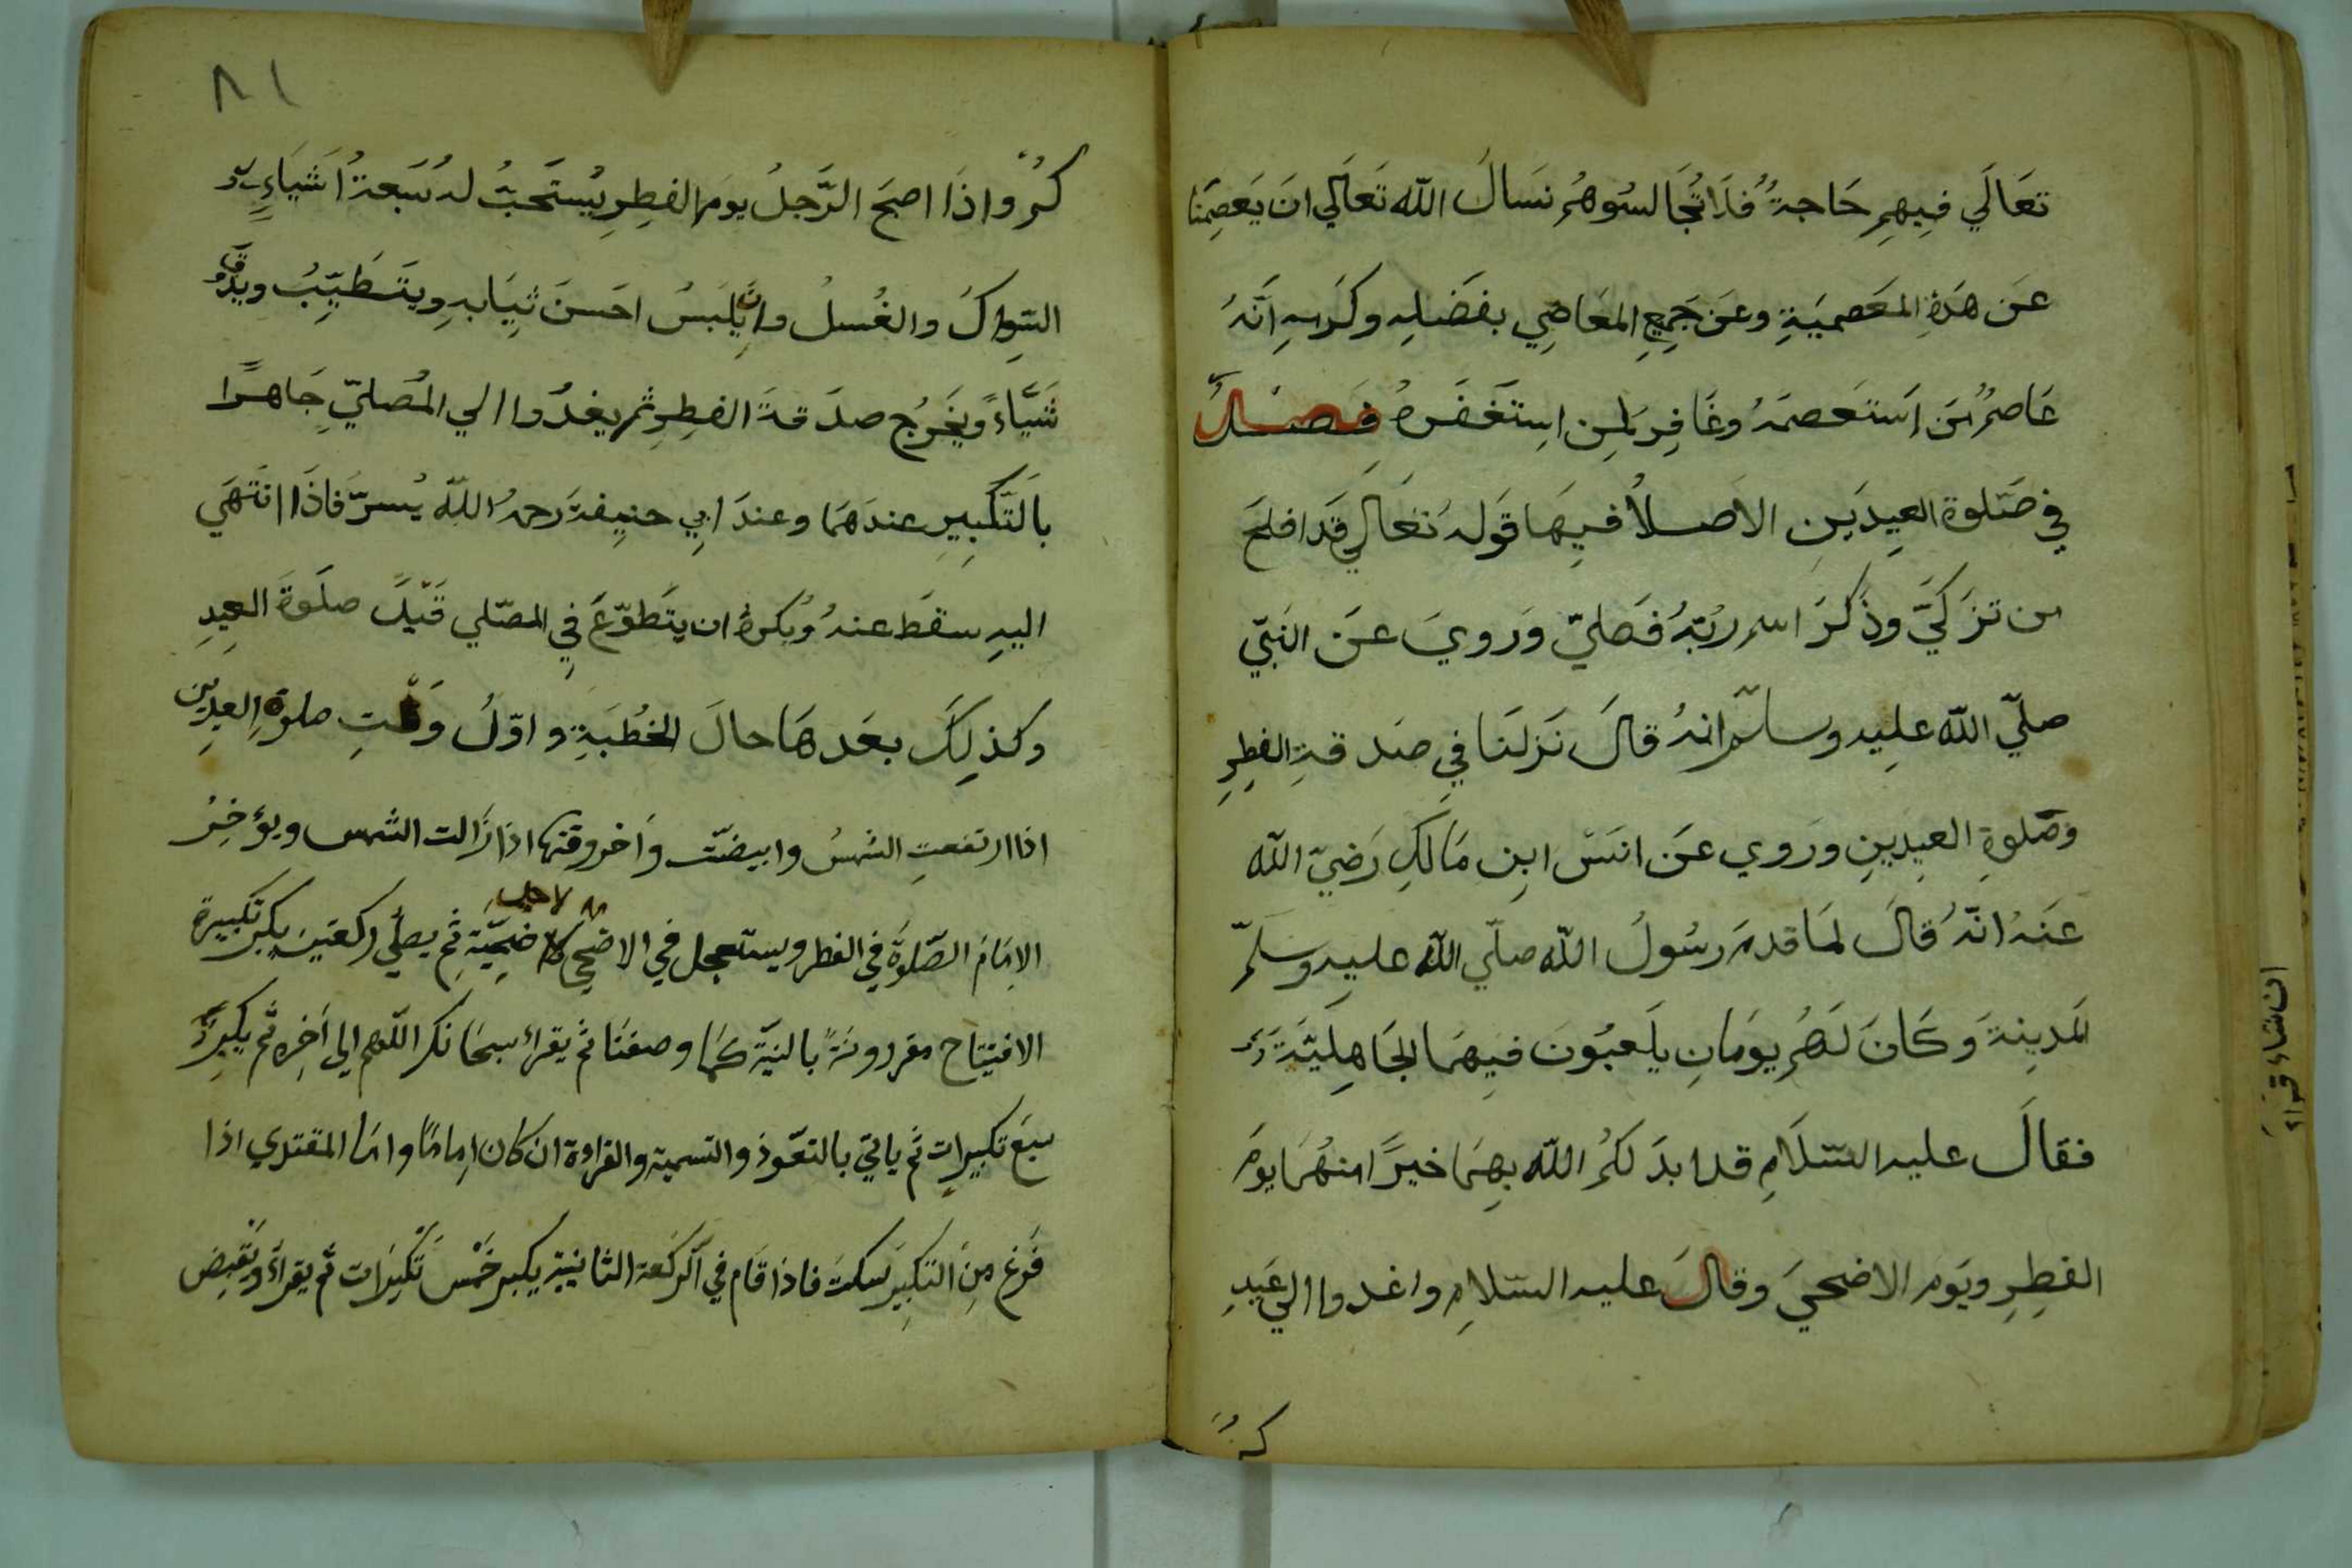 تعَالَي فيهِم حَاجة فلَا تُجَالسُوهُم نسَالُ الله تَعَالَي ان يَعصِمَنا
عَن هَذِهِ المَعَصميَةِ وعَن جَمِيعِ المعَاصِي بفَضَلِهِ وكَرَمِهِ انَّهُ
عَاصِمُ مَن استَعصَمَهُ وغَافِر لمِن اِستَغفَرهُ فصل
في صَلوة العِيدَين الاَصلُ فيهَا قَولهُ تعَالي قَد افلحَ
من تزَكَيَّ وذَكَرَ اسم ربّهُ فصَليّ وَرويَ عَن النبَيّ
صليّ الله عليه وسلّم انهُ قالَ نَزلَنَا في صَدقةِ الفطِرِ
وصَلوةِ العيدَينِ ورَوي عَن انسَ ابن مَالكِ رَضيّ الله
عَنهُ انّهُ قالَ لمَا قدمَ رسُولُ الله صلّي الله عليه وسَلمّ
المَدينةَ وكَانَ لَهُم يوَمَانِ يلَعبُونَ فيهمَا الجَاهِليَّة
فقالَ عليه السّلَامِ قد ابدَ لكُمُ الله بهِمَا خيرًا منهُمَا يومَ
الفطِرِ ويَوم الاضحيَ وقالَ عليه السّلامِ واغدوا الي عَيدِ
كم
٨١
كُم واذَا اصبَح الرَّجلُ يومَ الفطِرِ يُستَحَبُّ لهُ سَبَعةُ اَشيَاءِ
السِّواكُ والغُسلُ وان يلَبسُ احَسنَ ثيَابهِ ويتَطَيِّبُ ويذُوق
شَيَاءً ويُخَرج صدَقةَ الفطِرِ ثم يغدُوا الي المُصليّ جَاهرًا
بالَتَّكبِيرِ عندَهمَا وعندَ ابي حنِيفةَ رحمهُ الله يُسرّ فاذَا انتهَي
اليهِ سقطَ عنهُ وُيكرهُ ان يتَطوّعَ في المصّلي قَبلَ صلَوةَ العِيدِ
وكذلِكَ بعَدهَا حالَ الخُطبَةِ واوّلُ وَقتِ صلوةِ العيدين
اذا ارتفعتِ الشمسُ وابيضّت واَخر وقتها اذا زَالت الشمس ويؤخِرُ
الاِمَامَ الصّلوةَ في الفطر ويستعجل في الاضحي لاجل الاضحِيَّةِ ثم يصلّي ركعتين يكبر تكبيرة
الافتِتاح مقرونةً بالنيّة كمَا وصفنا ثم يقراء سبحَانكَ اللّهم الي اَخِره ثم يكبِر
سبعَ تكبيراتٍ ثم ياتيَ بالتعّوذ والتسمية والقراءة ان كان اِمامًا وامّا المقتدي اذا
فَرغ مِنَ التكبير سكت فاذا قَام في الركعة الثانية يكبر خَمْسَ تَكبيرَات ثم يقراءَ
ان شاء